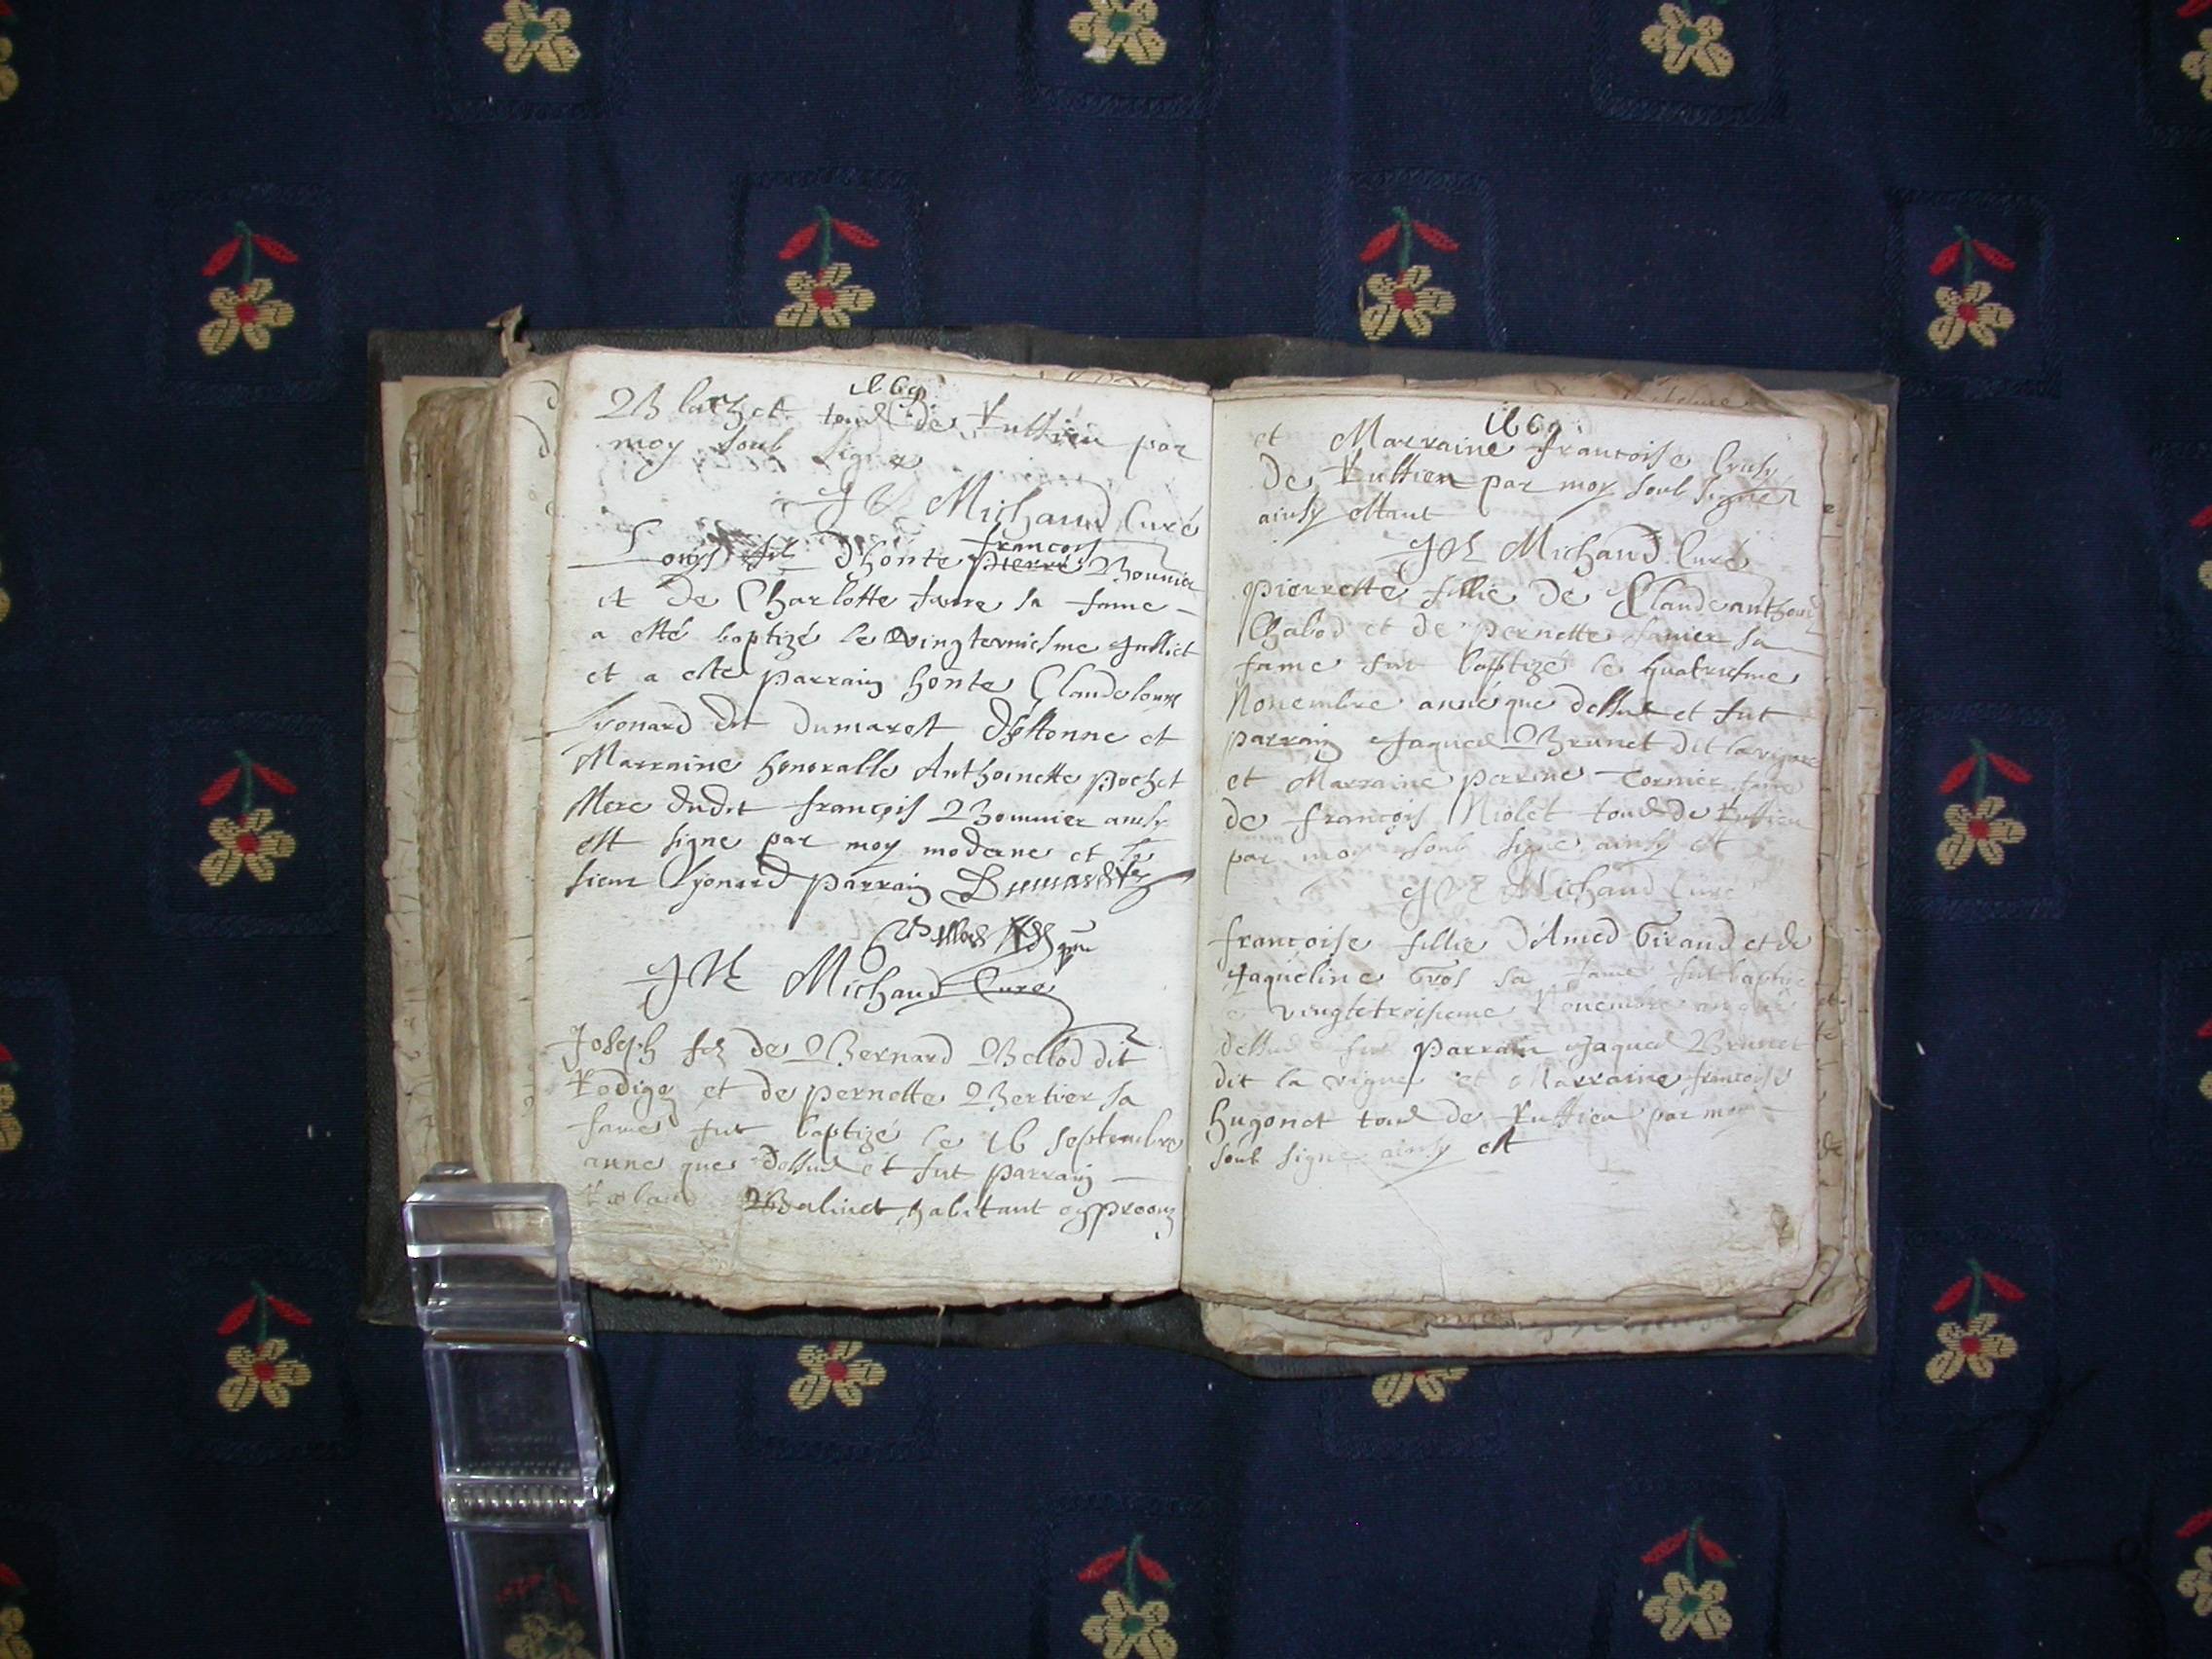 1669
Blanchet tous de Ruffieu par
moy soub signe
Michaud Curé
françois
Louys fil dhonte pierre Bonnier
et de Charlotte favre sa fame
a esté baptizé le vingteuniesme Jullict
et a este parrain honte Claude
Lyonard dit dumarest et
Marraine honoralle Anthoinette pochet
Mere dudit françois Bonnier ainsy
est signe par moy moderne et le
sieur Lyonard parrain
Michaud Curé
Joseph filz de Bernard Bellod dit
Rodige et de pernette Bertier sa
fame fut baptizé le 16 septembre
anne que dessus et fut parrain
habitant
1669
et Marraine francoise
de Ruffieu par moy soub signé
ainsy estant
Michaud Curé
pierrette fillie de Claude anthoine
Chabod et de pernette sa
fame fut baptizé le quatriesme
Novembre anné que dessus et fut
parrain Jaques Brunet dit la vigne
et Marraine perrine Cornier fame
de françois Niolet tous de Ruffieu
par moy soub signe ainsy est
Michaud Curé
françoise fillie d'Amed Giraud et de
Jaqueline Gros sa fame fut baptize
vingtetroisieme Novembre an que
dessus fut parrain Jaques Brunet
dit la vigne et Marraine francoise
hugonet tous de Ruffieu par moy
soub signe ainsy est